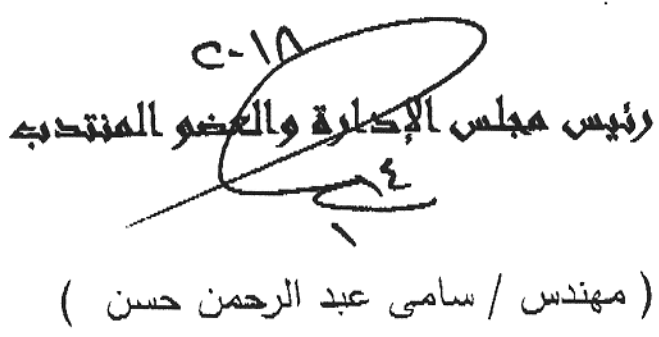 ٢٠١٨
رئيس مجلس الإدارة والعضو المنتدب
٤
١
( مهندس / سامى عبد الرحمن حسن )